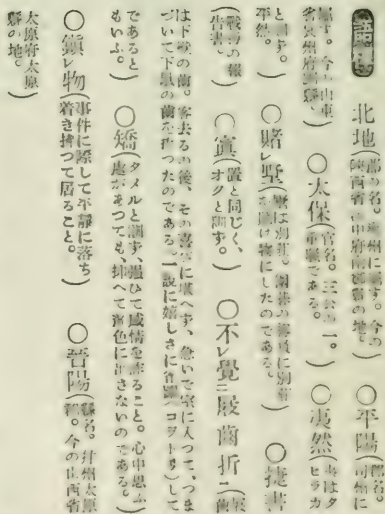 語釋 北地(郡の名。 州に屬す。今の陝西省 中府 の地。) ○平陽(郡名。司州に
屬す。今の山東 兗州府 縣。) ○太保(官名。三公の一。重職である。) ○夷然(夷はタヒラカ
と訓ず。平然。) ○賭レ墅(墅は別莊。圍碁の 別莊を賭け物にしたのである。) ○捷書
(戰勝の報告書。) ○寘(置と同じく、オクと訓ず。) ○不レ覺ニ屐齒折一(屐
は下駄の齒。客去るの後、その喜びに堪へず、急いで室に入つて、つま
づいて下駄の齒を折つたのである。一説に嬉しさに (コヲドリ)して
であると
もいふ。) ○矯(タメルと訓ず、强ひて感情を ること。心中思ふ處があつても、抑へて顏色に出さないのである。)
○鎭レ物(事件に際して平靜に落ち着き拂つて居ること。) ○晉陽(縣名。幷州太原郡。今の山西省
太原府太原縣の地。)